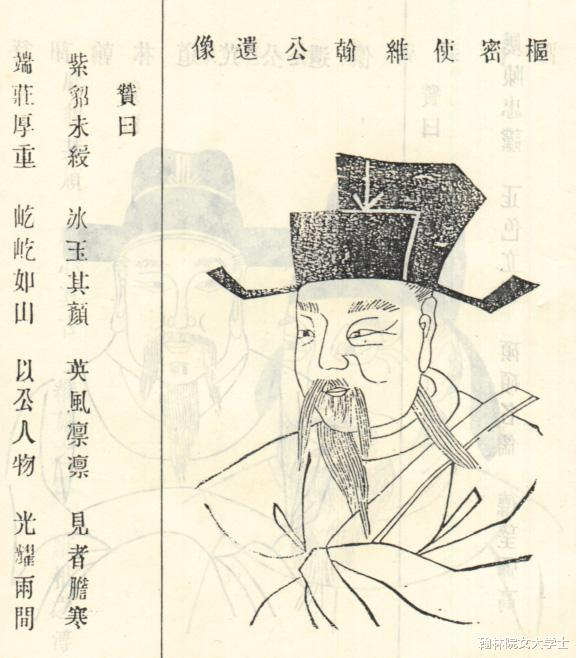 樞密使維翰公遺像
贊曰
紫貂未綬 氷玉其顏 英風凛凛 見者膽寒
端莊厚重 屹屹如山 以公人物 光耀兩間
翰林院女大学士